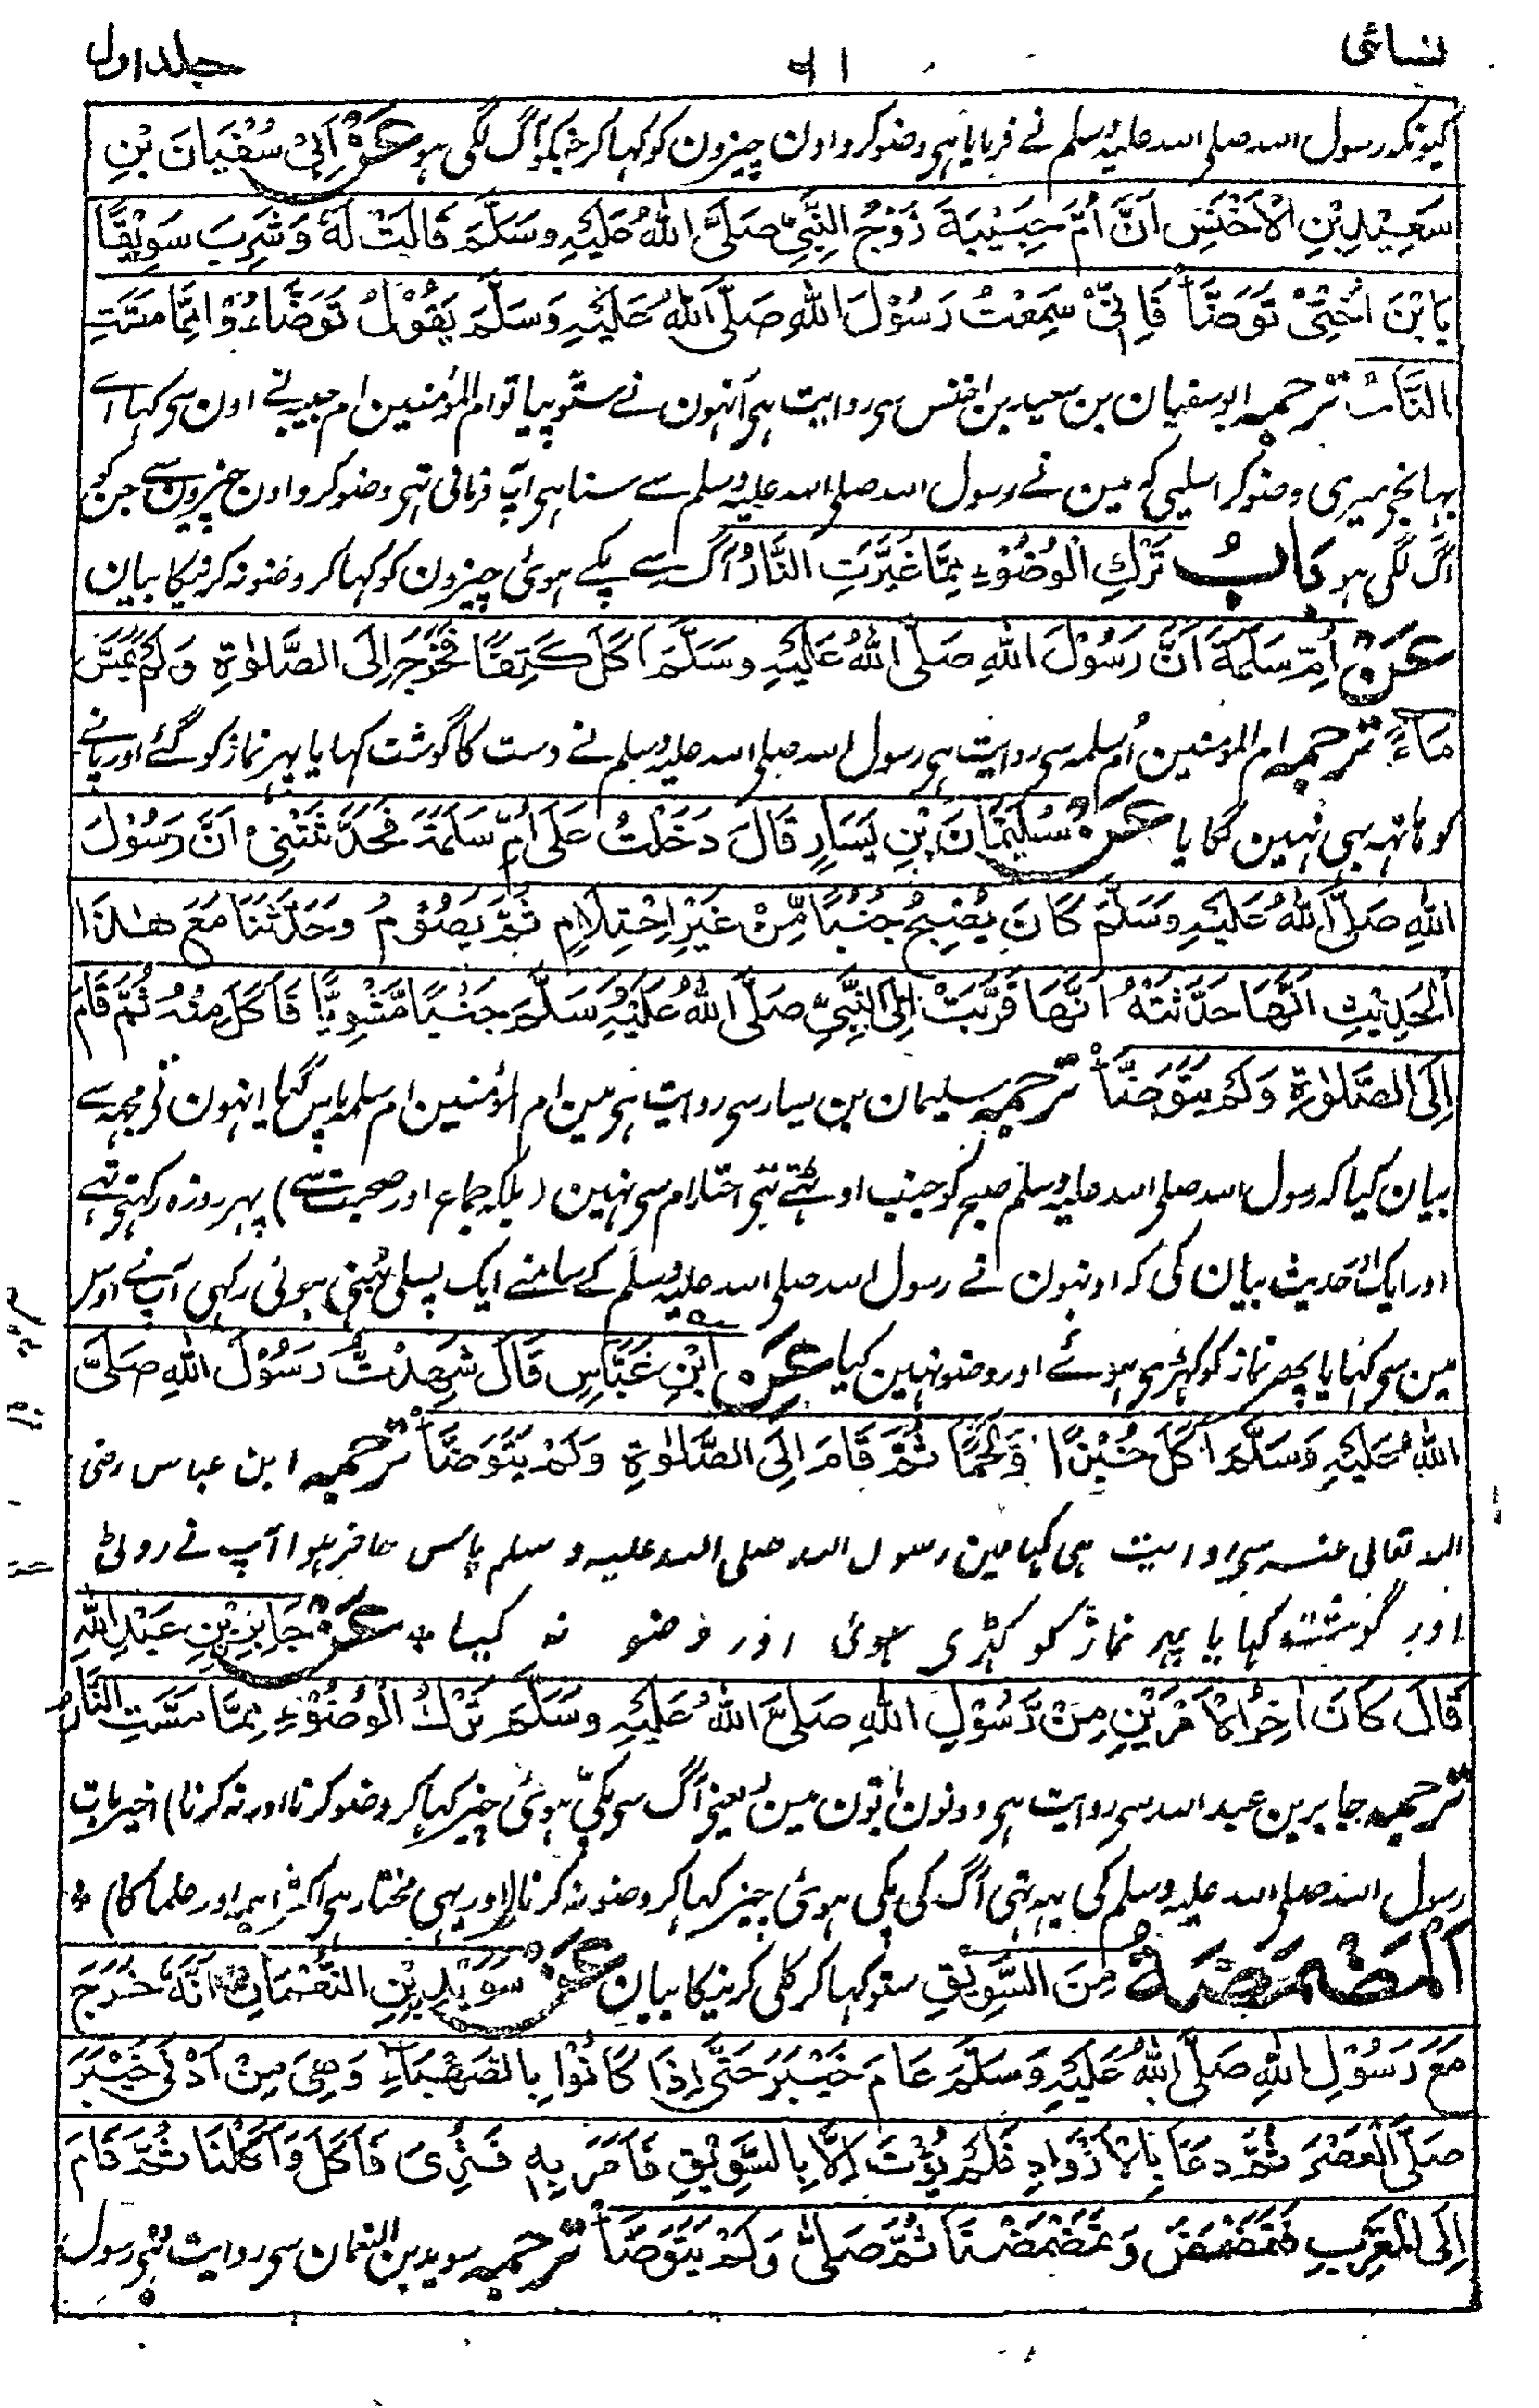 نسائی ۶۱ جلد اول
کیونکہ رسول اللہ صلی اللہ علیہ وسلم نے فرمایا ہی وضو کرو اون چیزون کو کہا کر جنکو آگ لگی ہو عَنْ اَبِیْ سُفْیَانَ بْنِ
سَعِیْدِ بْنِ الْاَخْنَسِ اَنَّ اُمَّ حَبِیْبَۃَ زَوْجَ النَّبِیِّ صَلَّی اللّٰہُ عَلَیْہِ وَسَلَّمَ قَالَتْ لَہٗ وَشَرِبَ سَوِیْقًا
یَا بْنَ اُخْتِیْ تَوَضَّأْ فَاِنِّیْ سَمِعْتُ رَسُوْلَ اللّٰہِ صَلَّی اللّٰہُ عَلَیْہِ وَسَلَّمَ یَقُوْلُ تَوَضَّاءُوْا مِمَّا مَسَّتِ
النَّارُ ترجمہ ابو سفیان بن سعید بن اخنس سی روایت ہی اُنہون نے ستّو پیا تو ام المؤمنین ام حبیبہ نے اون سی کہا اے
بہانجی میری وضو کر اسلیی کہ مین نے رسول اللہ صلی اللہ علیہ وسلم سے سنا ہی آپ فرماتی تہی وضو کرو اون چیزون سے جن کو
آگ لگی ہو بَابُ تَرْکِ الْوُضُوْءِ مِمَّا غَیَّرَتِ النَّارُ آگ سے پکے ہوئی چیزون کو کہا کر وضو نہ کرنیکا بیان
عَنْ اُمِّ سَلَمَۃَ اَنَّ رَسُوْلَ اللّٰہِ صَلَّی اللّٰہُ عَلَیْہِ وَسَلَّمَ اَکَلَ کَتِفًا فَخَرَجَ اِلَی الصَّلٰوۃِ وَلَمْ یَمَسَّ
مَاءً ترجمہ ام المؤمنین اُم سلمہ سی روایت ہی رسول اللہ صلی اللہ علیہ وسلم نے دست کا گوشت کہایا پہر نماز کو گئے اور پانے
کو ہاتہہ بہی نہین لگایا عَنْ سُلَیْمَانَ بْنِ یَسَارٍ قَالَ دَخَلْتُ عَلَی اُمِّ سَلَمَۃَ فَحَدَّثَتْنِیْ اَنَّ رَسُوْلَ
اللّٰہِ صَلَّی اللّٰہُ عَلَیْہِ وَسَلَّمَ کَانَ یُصْبِحُ جُنُبًا مِّنْ غَیْرِ اِحْتِلَامٍ ثُمَّ یَصُوْمُ وَحَدَّثَنَا مَعَ ھٰذَا
الْحَدِیْثِ اَنَّھَا حَدَّثَتْہُ اَنَّھَا قَرَّبَتْ اِلَی النَّبِیِّ صَلَّی اللّٰہُ عَلَیْہِ وَسَلَّمَ جَنْبًا مَّشْوِیًّا فَاَکَلَ مِنْہُ ثُمَّ قَامَ
اِلَی الصَّلٰوۃِ وَلَمْ یَتَوَضَّأْ ترجمہ سلیمان بن یسار سی روایت ہی مین ام المؤمنین ام سلمہ پاس گیا انہون نی مجہہ سے
بیان کیا کہ رسول اللہ صلی اللہ علیہ وسلم صبح کو جنب اوٹہتے تہی احتلام سی نہین (بلکہ جماع اور صحبت سے) پہر روزہ رکہتی تہے
اور ایک اَور حدیث بیان کی کہ اونہون نے رسول اللہ صلی اللہ علیہ وسلم کے سامنے ایک پسلی بُہنی ہوئی رکہی آپ نے اوس
مین سی کہایا پھر نماز کو کہڑی ہوئے اور وضو نہین کیا عَنِ ابْنِ عَبَّاسٍ قَالَ شَھِدْتُّ رَسُوْلَ اللّٰہِ صَلَّی
اللّٰہُ عَلَیْہِ وَسَلَّمَ اَکَلَ خُبْزًا وَّلَحْمًا ثُمَّ قَامَ اِلَی الصَّلٰوۃِ وَلَمْ یَتَوَضَّأْ ترجمہ ابن عباس رضی
اللہ تعالی عنہ سی روایت ہی کہا مین رسول اللہ صلی اللہ علیہ وسلم پاس حاضر ہوا آپ نے روٹی
اور گوشت کہایا پہر نماز کو کہڑی ہوئی اور وضو نہ کیا * عَنْ جَابِرِ بْنِ عَبْدِ اللّٰہِ
قَالَ کَانَ اٰخِرُ الْاَمْرَیْنِ مِنْ رَّسُوْلِ اللّٰہِ صَلَّی اللّٰہُ عَلَیْہِ وَسَلَّمَ تَرْکُ الْوُضُوْءِ مِمَّا مَسَّتِ النَّارُ
ترجمہ جابر بن عبد اللہ سی روایت ہی دونون باتون مین (یعنی آگ سی پکی ہوئی چیز کہا کر وضو کرنا اور نہ کرنا) اخیر بات
رسول اللہ صلی اللہ علیہ وسلم کی یہہ تہی آگ کی پکی ہوئی چیز کہا کر وضو نہ کرنا (اور یہی مختار ہی اکثر ائمہ اور علما کا) *
اَلْمَضْمَضَۃُ مِنَ السَّوِیْقِ ستو کہا کر کلی کرنیکا بیان عَنْ سُوَیْدِ بْنِ النُّعْمَانِ اَنَّہٗ خَرَجَ
مَعَ رَسُوْلِ اللّٰہِ صَلَّی اللّٰہُ عَلَیْہِ وَسَلَّمَ عَامَ خَیْبَرَ حَتّٰی اِذَا کَانُوْا بِالصَّھْبَاءِ وَھِیَ مِنْ اَدْنٰی خَیْبَرَ
صَلَّی الْعَصْرَ ثُمَّ دَعَا بِالْاَزْوَادِ فَلَمْ یُؤْتَ اِلَّا بِالسَّوِیْقِ فَاَمَرَ بِہٖ فَثُرِّیَ فَاَکَلَ وَاَکَلْنَا ثُمَّ قَامَ
اِلَی الْمَغْرِبِ فَتَمَضْمَضَ وَتَمَضْمَضْنَا ثُمَّ صَلّٰی وَلَمْ یَتَوَضَّأْ ترجمہ سوید بن النعمان سی روایت ہی رسول